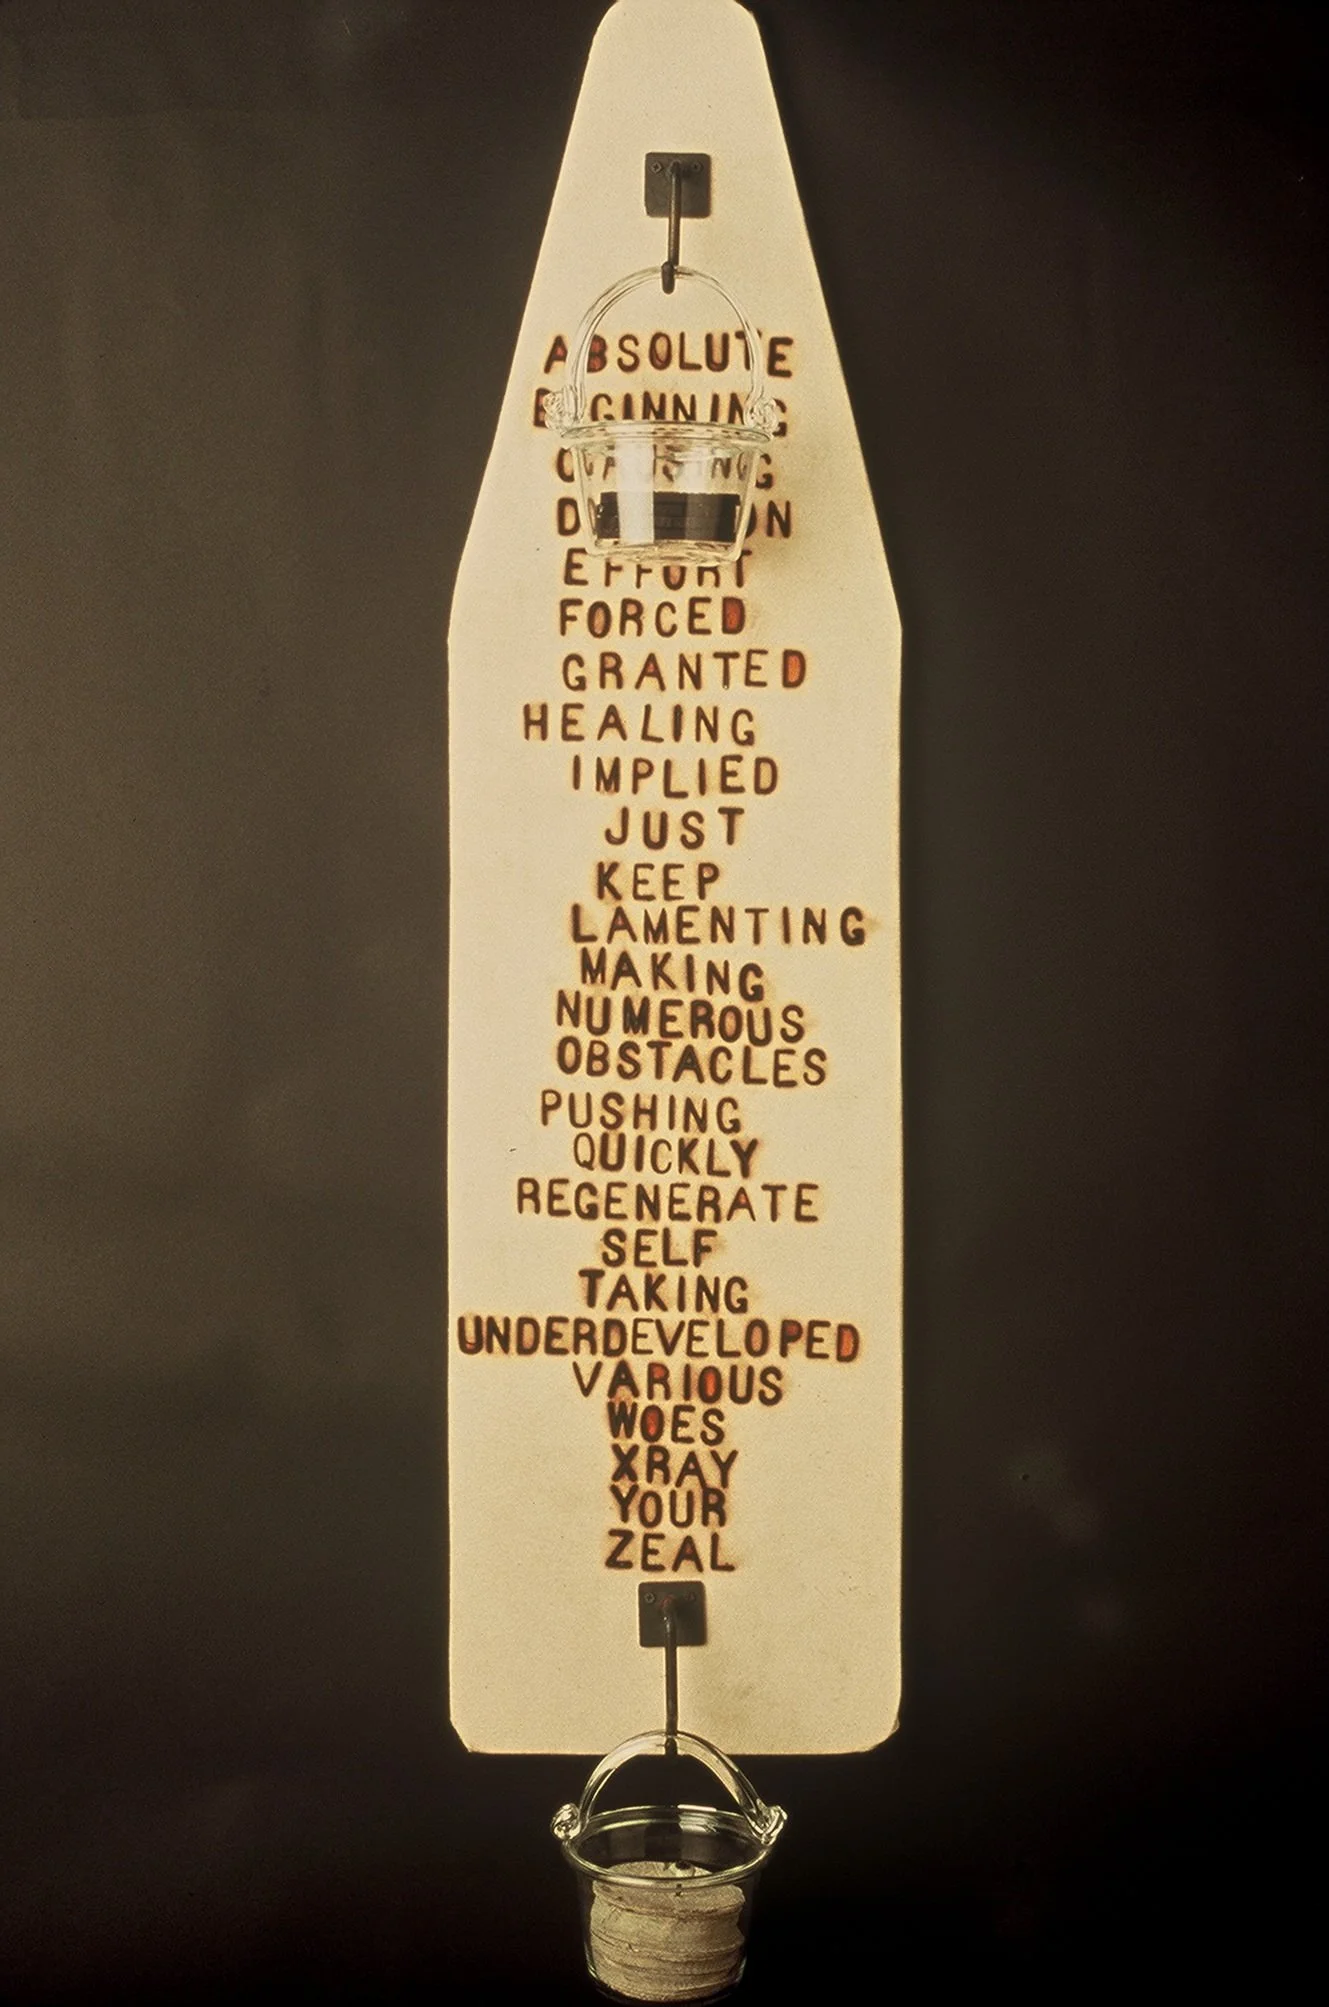 ABSOLUTE
BEGINNING
CAUSING
EFFORT
FORCED
GRANTED
HEALING
IMPLIED
JUST
KEEP
LAMENTING
MAKING
NUMEROUS
OBSTACLES
PUSHING
QUICKLY
REGENERATE
SELF
TAKING
UNDERDEVELOPED
VARIOUS
WOES
XRAY
YOUR
ZEAL